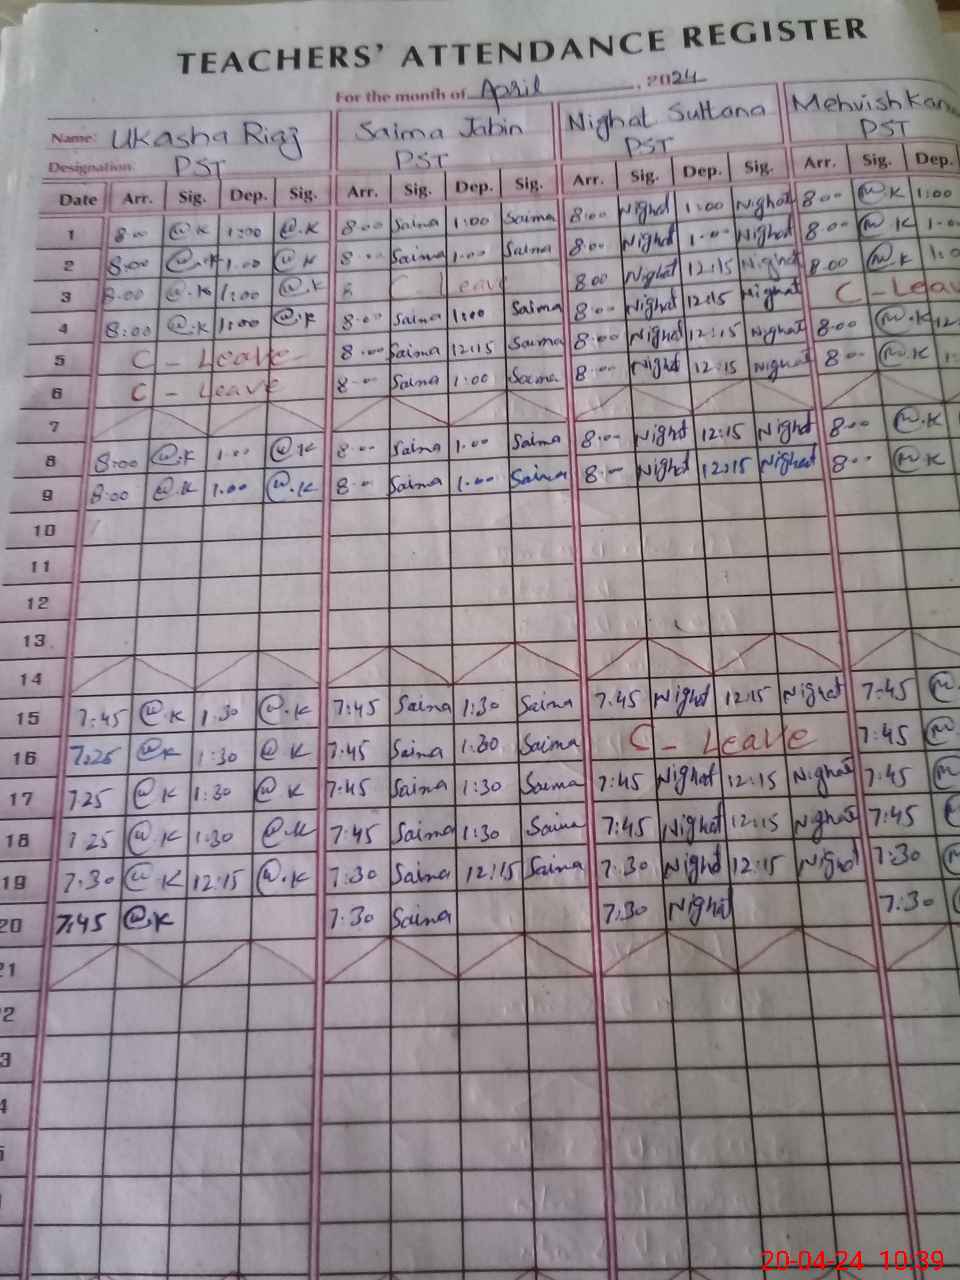 TEACHERS' ATTENDANCE REGISTER
For the month of April, 2024
Name: Ukasha Riaz Saima Jabin Nighat Sultana Mehvish
Designation PST PST PST PST
Date Arr. Sig. Dep. Sig. Arr. Sig. Dep. Sig. Arr. Sig. Dep. Sig. Arr. Sig. Dep.
1 8:00 @.K 1:00 @.K 8:00 Saima 1:00 Saima 8:00 Nighat 1:00 Nighat 8:00 @.K 1:00
2 8:00 @.K 1:00 @.K 8:00 Saima 1:00 Saima 8:00 Nighat 1:00 Nighat 8:00 @.K
3 8:00 @.K 1:00 @.K 8 C - Leave 8:00 Nighat 12:15 Nighat 8:00 @.K
4 8:00 @.K 1:00 @.K 8:00 Saima 1:00 Saima 8:00 Nighat 12:15 Nighat C - Leav
5 C - Leave 8:00 Saima 12:15 Saima 8:00 Nighat 12:15 Nighat 8:00 @.K 12
6 C - Leave 8:00 Saima 1:00 Saima 8:00 Nighat 12:15 Nighat 8:00 @.K
7
8 8:00 @.K 1:00 @.K 8:00 Saima 1:00 Saima 8:00 Nighat 12:15 Nighat 8:00 @.K
9 8:00 @.K 1:00 @.K 8:00 Saima 1:00 Saima 8:00 Nighat 12:15 Nighat 8:00 @.K
10
11
12
13
14
15 7:45 @.K 1:30 @.K 7:45 Saima 1:30 Saima 7:45 Nighat 12:15 Nighat 7:45
16 7:25 @K 1:30 @K 7:45 Saima 1:30 Saima C - Leave 7:45
17 725 @K 1:30 @K 7:45 Saima 1:30 Saima 7:45 Nighat 12:15 Nighat 7:45
18 7 25 @.K 1:30 @.K 7:45 Saima 1:30 Saima 7:45 Nighat 12:15 Nighat 7:45
19 7:30 @K 12:15 @.K 7:30 Saima 12:15 Saima 7:30 Nighat 12:15 Nighat 7:30
20 7:45 @.K 7:30 Saima 7:30 Nighat 7:30
21
2
3
4
20-04-24 10:39